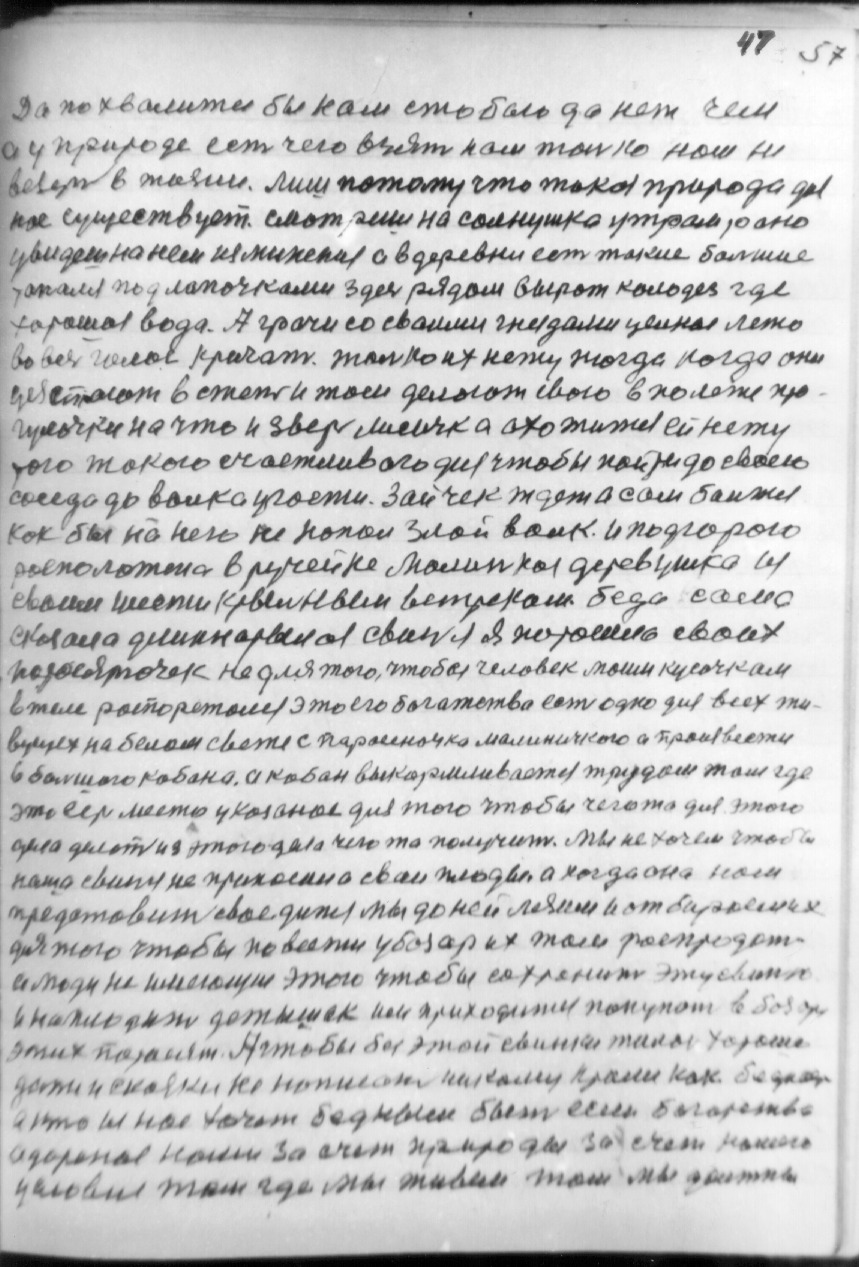 47 57
Да похвалится бы нам стобало да нет чем
а у природе есть чего взять нам только нам не
везеть в жизни. Лиш потому что такая природа для
нас существует. смотриш на солнушка утрам рано
увидеш на нем изминения а в деревни есть такие большие
тапаля под лапочками здея рядам вырот колодез где
хорошая вода. А грачи со своими гнездами целное лето
во весь голос кричат. только их нету тогда когда они
в степь и там делают свою в полете про-
гулочки на что и зверь лисичка охотится ей нету
того такого счастливого дня чтобы найти до своего
соседа до волка угости. Зайчек ждет а сам боится
как бы на него не попал злой волк. и под гарою
расположена в ручейке малинкая деревушка из
своим шести крылным ветрякам. беда сама
сказала длинарылая свиня я поросила своих
поросяточек не для того, чтобы человек маим кусочкам
в теле распоряжался это его богатства есть одно для всех жи-
вущех на белом свете с пароеночка малиничкого а произвести
в большого кабана. а кабан выкармливается трудом там где
это есь место указаное для того чтобы чегото для этого
дела делать из этого дела чегота получить. Мы не хочем чтобы
наша свиня не приносила сваи плоды. а когда она нам
представит свое дитя мы до ней лезим и отбираем их
для того чтобы повести у базар их там распродать
а люди не имеющии этого чтобы сохранить эту свиню
и наплодить детишак им приходится покупать в базаре
этих поросят. А чтобы без этой свинки жилос хорошо
дажи и сказки не написать никому кроми как бедноер
а кто из нас хочет бедным быть если богатства
адареное нами за счет природы за счет нашего
условия там где мы живем там мы должны